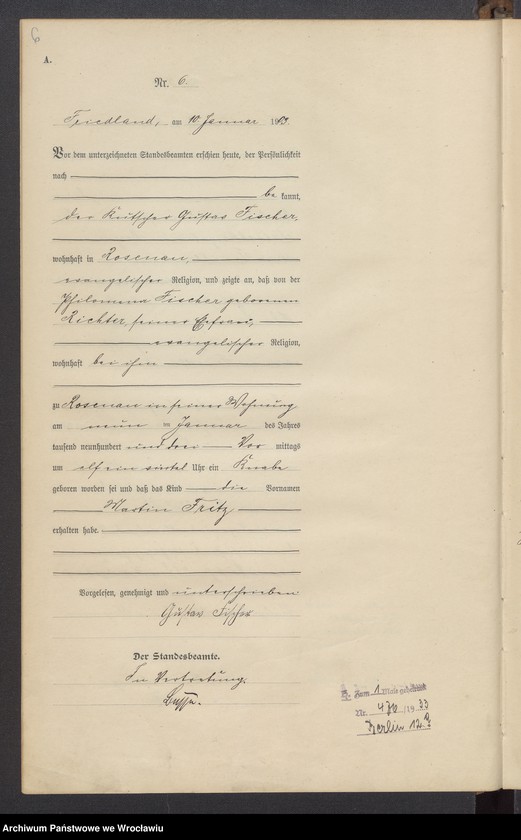 6
A.
Nr. 6.
Friedland, am 10. Januar 1903.
Vor dem unterzeichneten Standesbeamten erschien heute, der Persönlichkeit
nach
be kannt,
der Kutscher Gustav Fischer,
wohnhaft in Rosenau,
evangelischer Religion, und zeigte an, daß von der
Philomena Fischer geborenen
Richter, seiner Ehefrau,
evangelischer Religion,
wohnhaft bei ihm
zu Rosenau in seiner Wohnung
am neun ten Januar des Jahres
tausend neunhundert und drei Vor mittags
um elf ein viertel Uhr ein Knabe
geboren worden sei und daß das Kind die Vornamen
Martin Fritz
erhalten habe.
Vorgelesen, genehmigt und unterschrieben
Gustav Fischer
Der Standesbeamte.
In Vertretung.
Zum 1 Male geheiratet
Nr. 1933
Berlin 12
Archiwum Państwowe we Wrocławiu